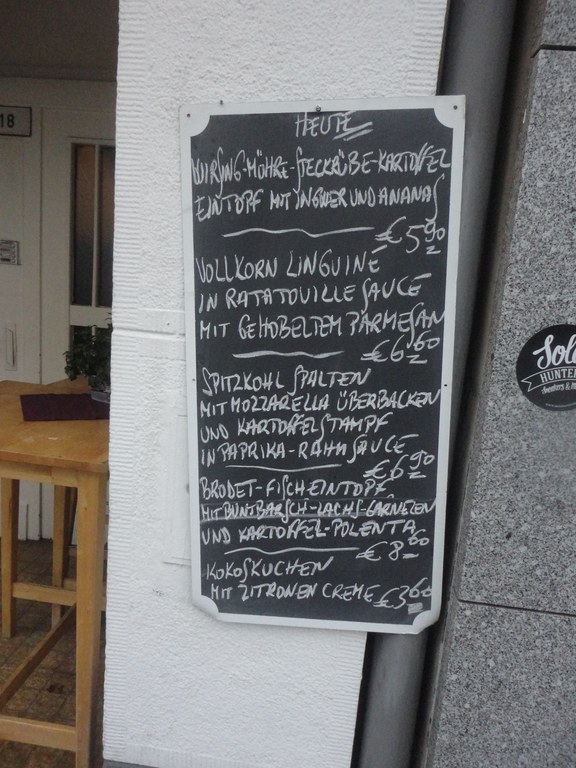 HEUTE
WIRSING-MÖHRE-STECKRÜBE-KARTOFFEL
EINTOPF MIT INGWER UND ANANAS
€ 5.90
VOLLKORN LINGUINE
IN RATATOUILLE SAUCE
MIT GEHOBELTEM PARMESAN
€ 6.60
SPITZKOHL SPALTEN
MIT MOZZARELLA ÜBERBACKEN
UND KARTOFFELSTAMPF
IN PAPRIKA-RAHM SAUCE
€ 6.90
BRODET-FISCHEINTOPF
MIT BUNTBARSCH-LACHS-GARNELEN
UND KARTOFFEL-POLENTA
€ 8.60
KOKOSKUCHEN
MIT ZITRONEN CREME €3.60
18
HUNTER